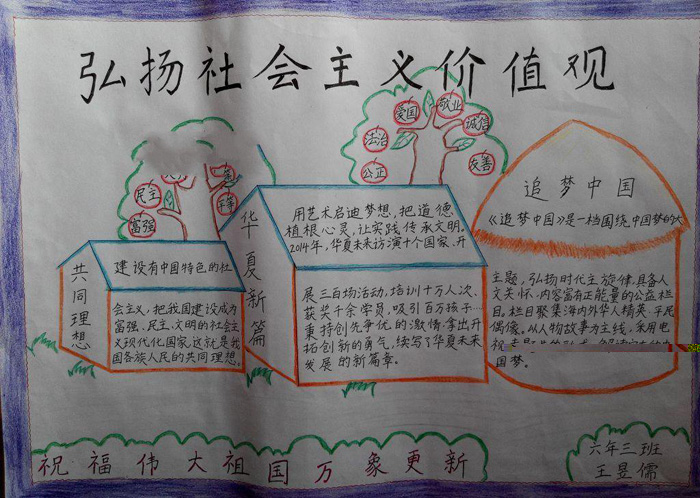 弘扬社会主义价值观
爱国
敬业
诚信
友善
法治
公正
民主
富强
平等
共同理想
建设有中国特色的社
会主义，把我国建设成为
富强、民主、文明的社会主
义现代化国家，这就是我
国各族人民的共同理想。
华夏新篇
用艺术启迪梦想，把道德
植根心灵，让实践传承文明。
2014年，华夏未来访演十个国家，开
展三百场活动，培训十万人次、
获奖千余学员，吸引百万孩子…
秉持创先争优的激情，拿出开
拓创新的勇气，续写了华夏未来
发展的新篇章。
追梦中国
《追梦中国》是一档围绕中国梦的大
主题，弘扬时代主旋律，具备人
文关怀、内容富有正能量的公益栏
目。栏目聚集海内外华人精英、平民
偶像。从人物故事为主线，采用电
国梦。
祝福伟大祖国万象更新
六年三班
王昱儒